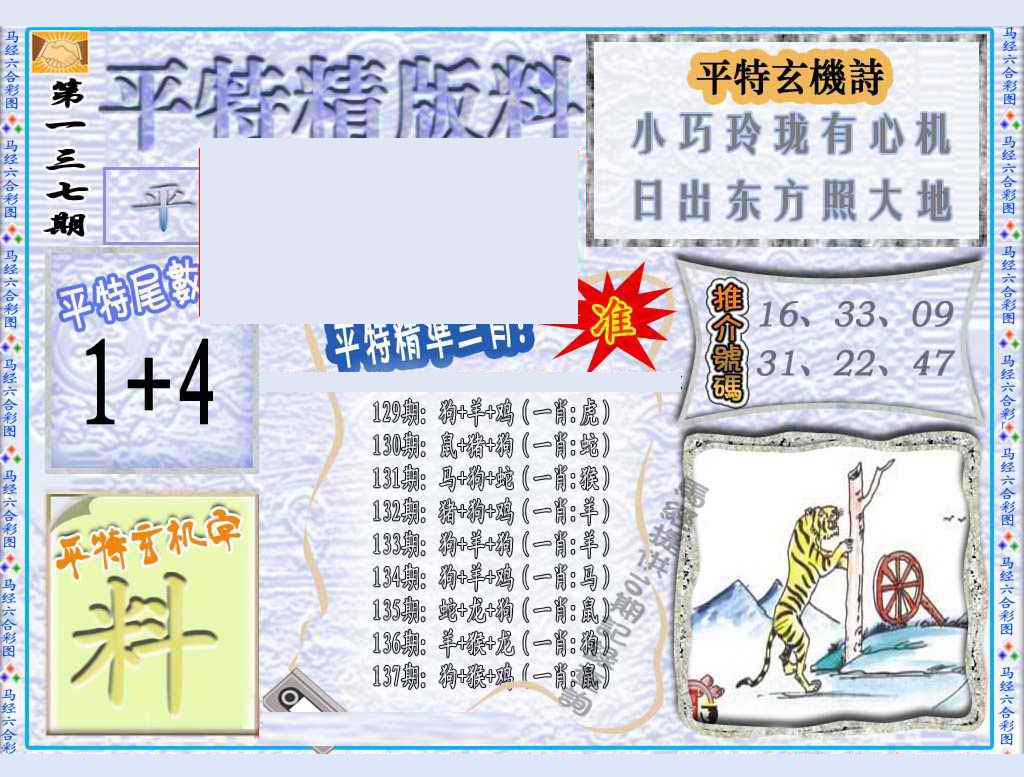 第一三七期
平特精版料
平
平特玄機詩
小巧玲珑有心机
日出东方照大地
平特尾數
1+4
平特精準三肖!
准
推介號碼
16、33、09
31、22、47
129期: 狗+羊+鸡(一肖:虎)
130期: 鼠+猪+狗(一肖:蛇)
131期: 马+狗+蛇(一肖:猴)
132期: 猪+狗+鸡(一肖:羊)
133期: 狗+羊+狗(一肖:羊)
134期: 狗+羊+鸡(一肖:马)
135期: 蛇+龙+狗(一肖:鼠)
136期: 羊+猴+龙(一肖:狗)
137期: 狗+猴+鸡(一肖:鼠)
平特玄机字
料
马经六合彩图
马经六合彩图
马经六合彩图
马经六合彩图
马经六合彩图
马经六合彩图
马经六合彩
马经六合彩图
马经六合彩图
马经六合彩图
马经六合彩图
马经六合彩图
马经六合彩图
马经六合彩图